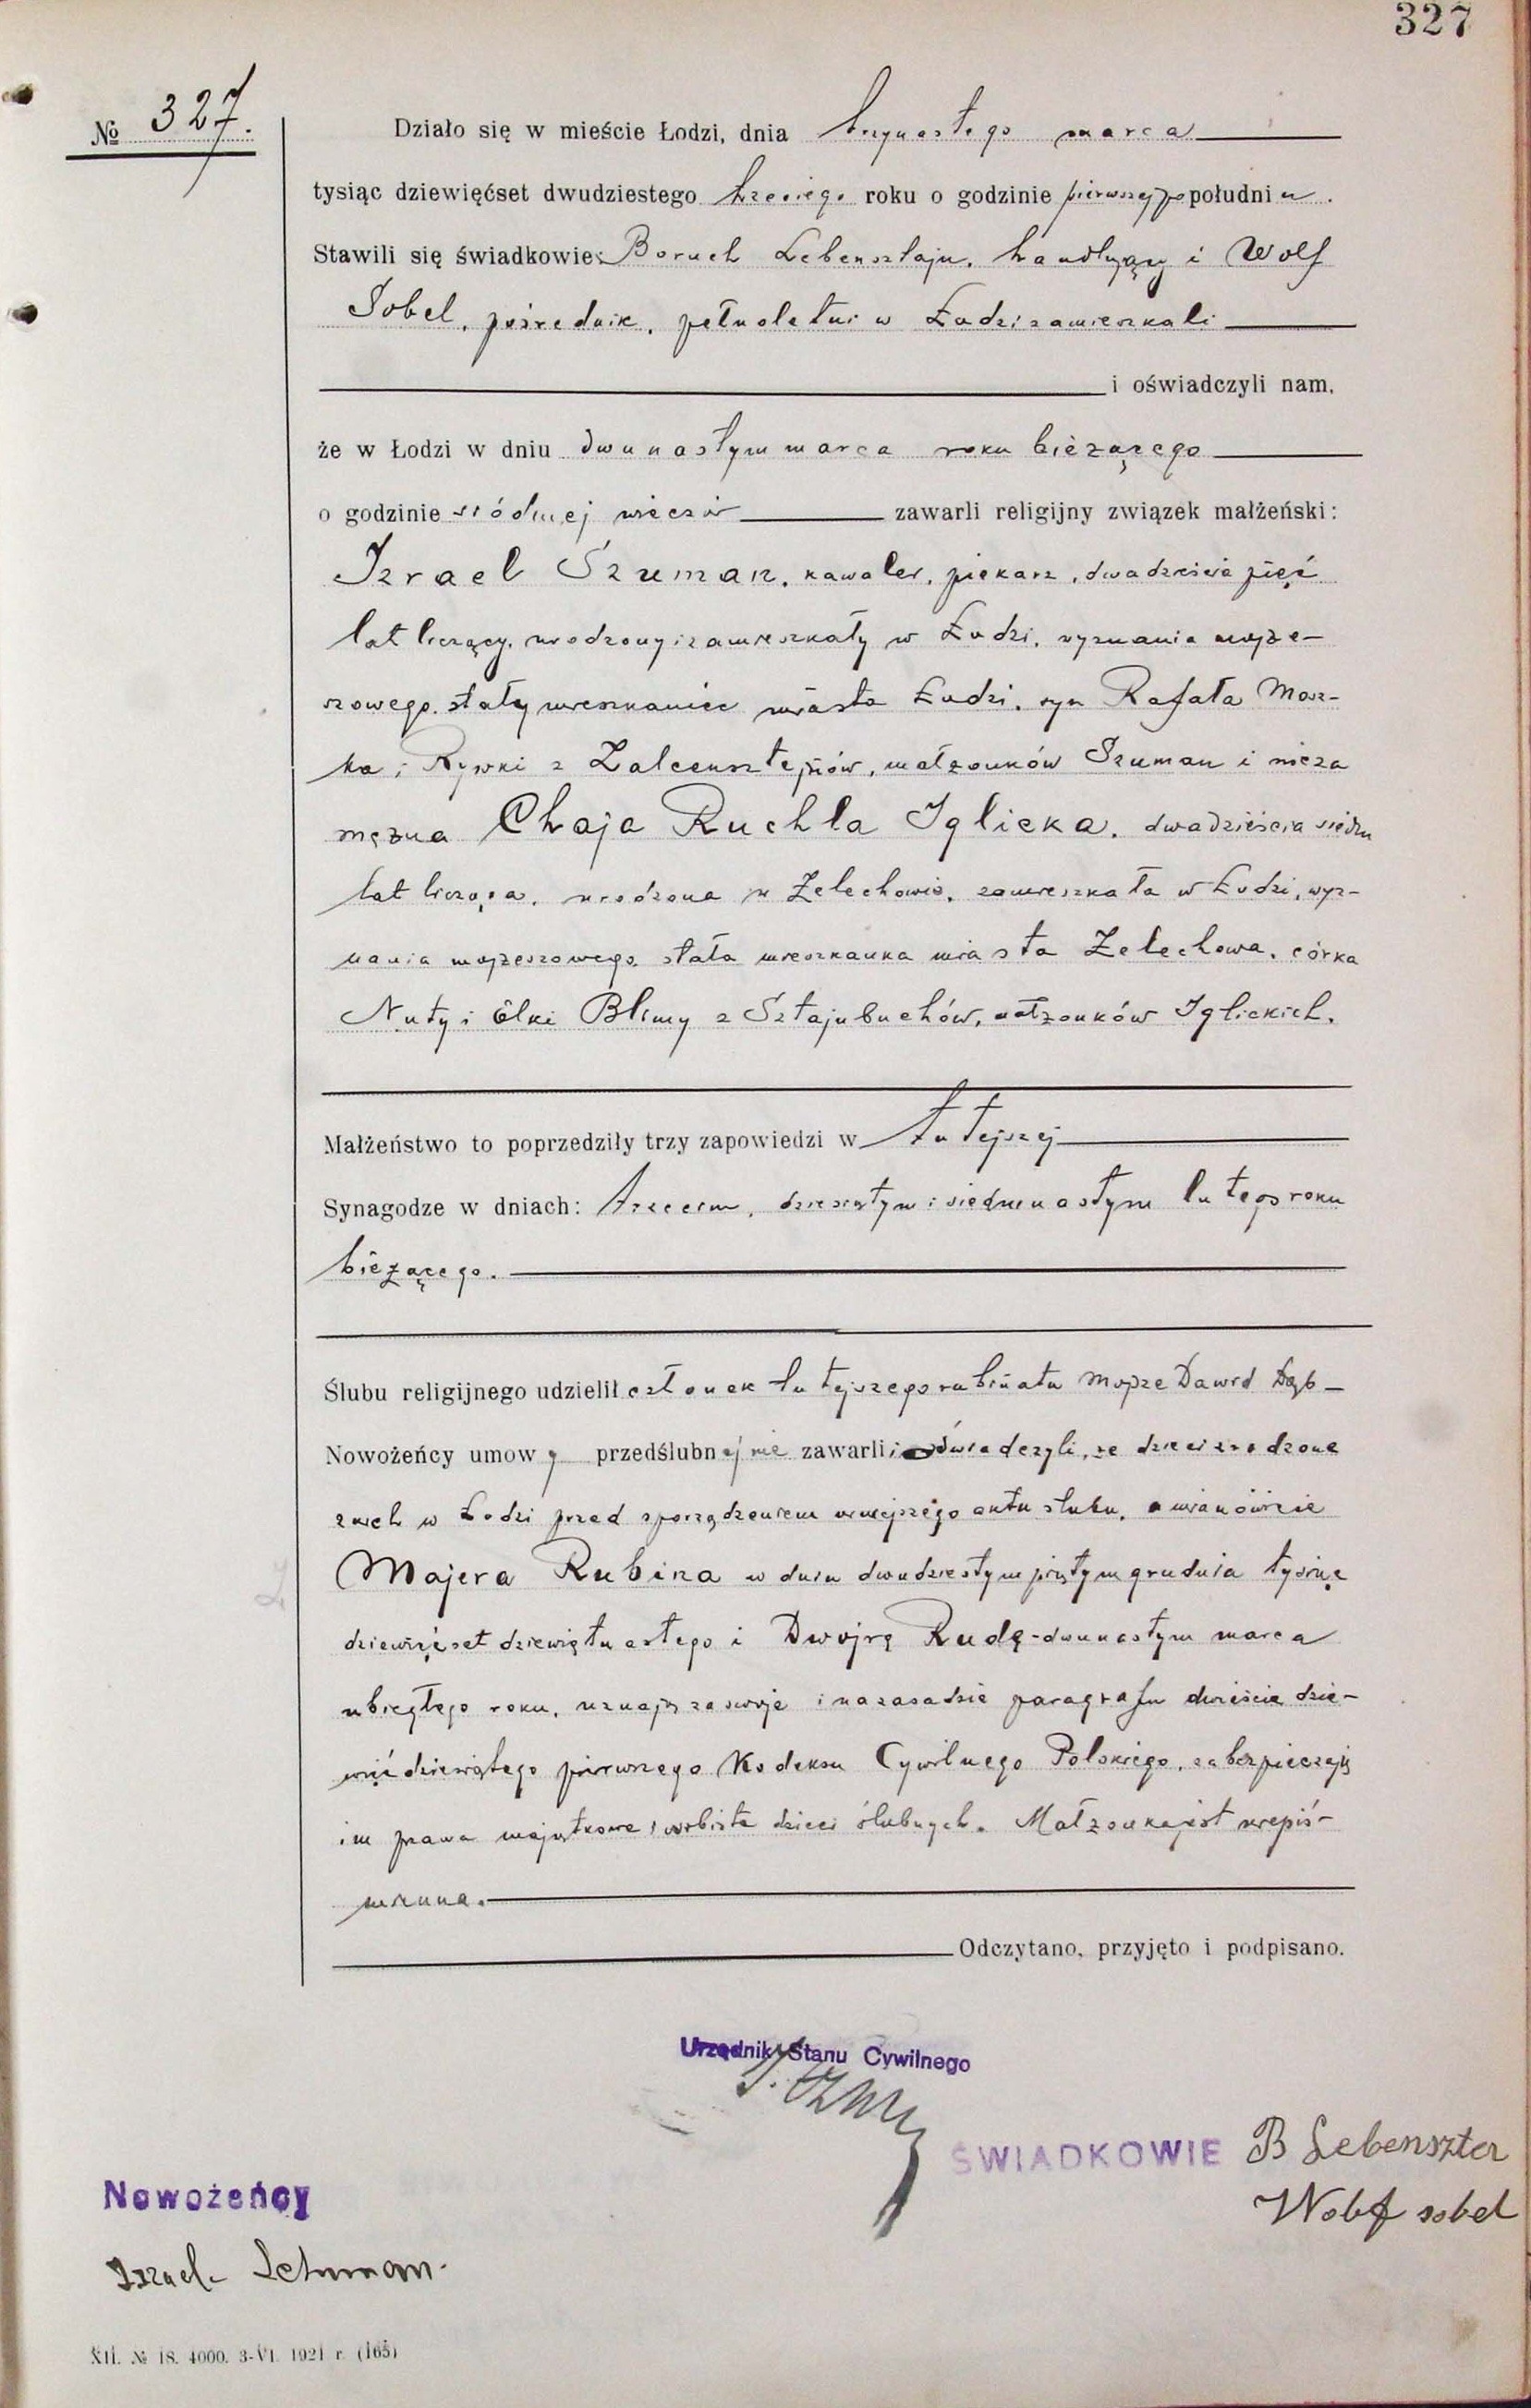 327
№ 327.
Działo się w mieście Łodzi, dnia trzynastego marca
tysiąc dziewięćset dwudziestego trzeciego roku o godzinie pierwszej po południu.
Stawili się świadkowie: Boruch Lebensztajn, handlujący i Wolf
Sobel, pośrednik, pełnoletni w Łodzi zamieszkali
i oświadczyli nam,
że w Łodzi w dniu dwunastym marca roku bieżącego
o godzinie siódmej wieczór zawarli religijny związek małżeński:
Izrael Szuman, kawaler, piekarz, dwadzieścia pięć
lat liczący, urodzony i zamieszkały w Łodzi, wyznania mojże-
szowego, stały mieszkaniec miasta Łodzi, syn Rafała Mosz-
ka i Rywki z Zalcensztejnów, małżonków Szuman i nieza
mężna Chaja Ruchla Iglicka, dwadzieścia siedm
lat licząca, urodzona w Żelechowie, zamieszkała w Łodzi, wyz-
nania mojżeszowego, stała mieszkanka miasta Żelechowa, córka
Nuty i Elki Blimy z Sztajnbuchów, małżonków Iglickich.
Małżeństwo to poprzedziły trzy zapowiedzi w tutejszej
Synagodze w dniach: trzecim, dziesiątym i siedmnastym lutego roku
bieżącego.
Ślubu religijnego udzielił członek tutejszego rabinatu Mojże Dawid Dąb-
Nowożeńcy umowy przedślubnej nie zawarli i oświadczyli, że dzieci zrodzone
z nich w Łodzi przed sporządzeniem niniejszego aktu ślubu, a mianowicie
Majera Rubina w dniu dwudziestym piątym grudnia tysiąc
dziewięćset dziewiętnastego i Dwojrę Rudę - dwunastym marca
ubiegłego roku, uznają za swoje i na zasadzie paragrafu dwieście dzie-
więćdziesiątego pierwszego Kodeksu Cywilnego Polskiego, zabezpieczają
im prawa majątkowe i osobiste dzieci ślubnych. Małżonka jest niepiś-
mienna.
Odczytano, przyjęto i podpisano.
Urzędnik Stanu Cywilnego
ŚWIADKOWIE B Lebenszten
Wolf sobel
Nowożeńcy
Izrael Schuman
XII. № 18. 4000. 3-VI. 1921 r. (165)